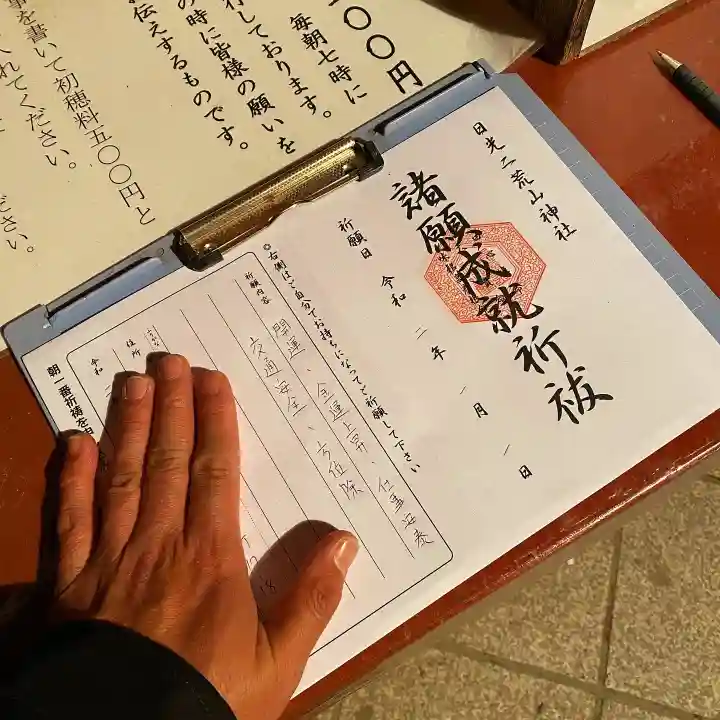 〇〇円
毎朝七時に
行しております。
の時に皆様の願いを
伝えするものです。
事を書いて初穂料五〇〇円と
れてください。
ださい。
日光二荒山神社
諸願成就祈祓
祈願日 令和 二 年 一 月 一 日
◎右側はご自分でお持ちになってご祈願して下さい
祈願内容
開運、金運上昇、仕事安泰
交通安全、方位除
住所
令和
朝一番祈祷を申